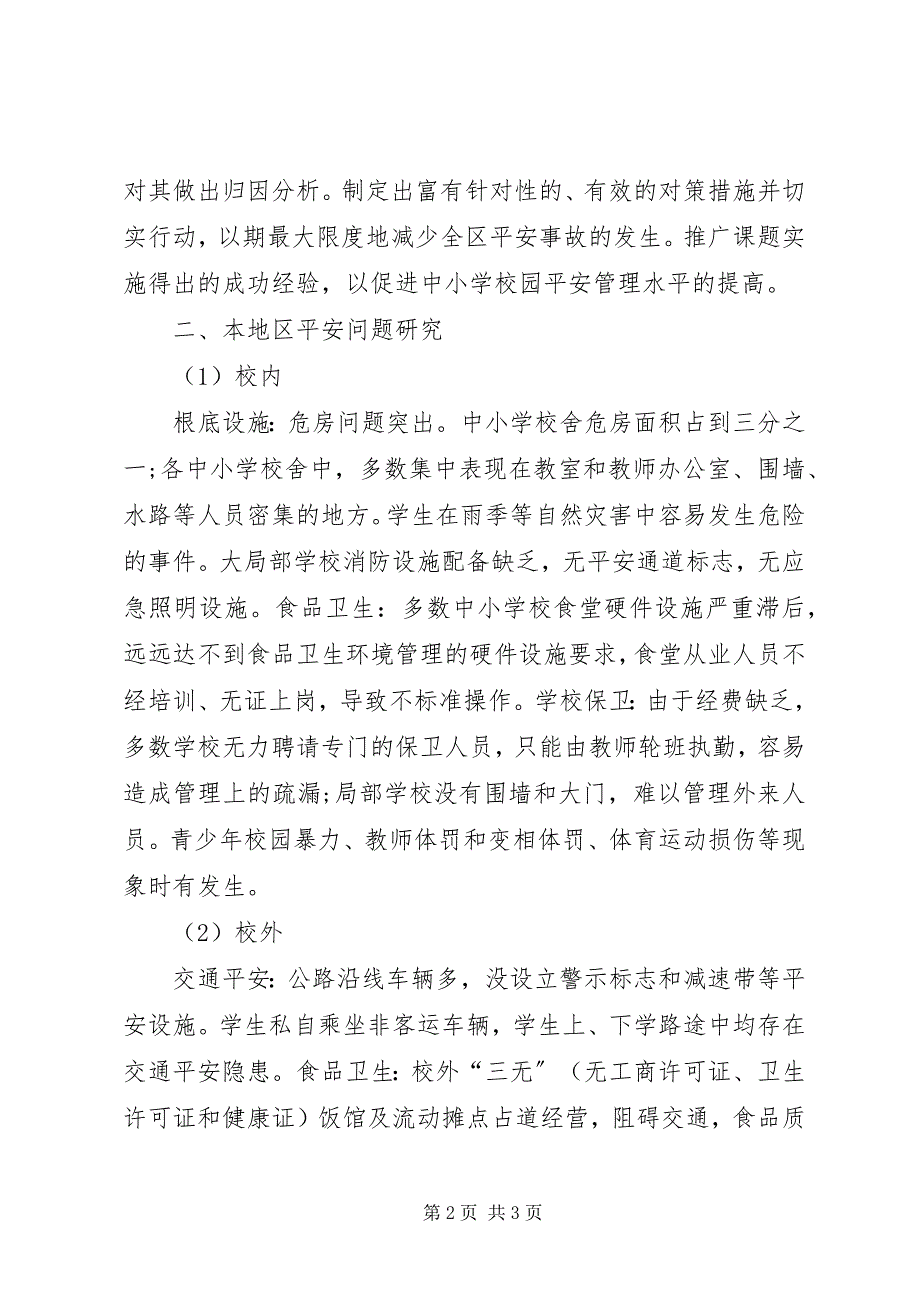 对其做出归因分析。制定出富有针对性的、有效的对策措施并切
实行动，以期最大限度地减少全区平安事故的发生。推广课题实
施得出的成功经验，以促进中小学校园平安管理水平的提高。
二、本地区平安问题研究
（1）校内
根底设施：危房问题突出。中小学校舍危房面积占到三分之
一;各中小学校舍中，多数集中表现在教室和教师办公室、围墙、
水路等人员密集的地方。学生在雨季等自然灾害中容易发生危险
的事件。大局部学校消防设施配备缺乏，无平安通道标志，无应
急照明设施。食品卫生：多数中小学校食堂硬件设施严重滞后，
远远达不到食品卫生环境管理的硬件设施要求，食堂从业人员不
经培训、无证上岗，导致不标准操作。学校保卫：由于经费缺乏，
多数学校无力聘请专门的保卫人员，只能由教师轮班执勤，容易
造成管理上的疏漏;局部学校没有围墙和大门，难以管理外来人
员。青少年校园暴力、教师体罚和变相体罚、体育运动损伤等现
象时有发生。
（2）校外
交通平安：公路沿线车辆多，没设立警示标志和减速带等平
安设施。学生私自乘坐非客运车辆，学生上、下学路途中均存在
交通平安隐患。食品卫生：校外“三无〞（无工商许可证、卫生
许可证和健康证）饭馆及流动摊点占道经营，阻碍交通，食品质
第 2 页 共 3 页